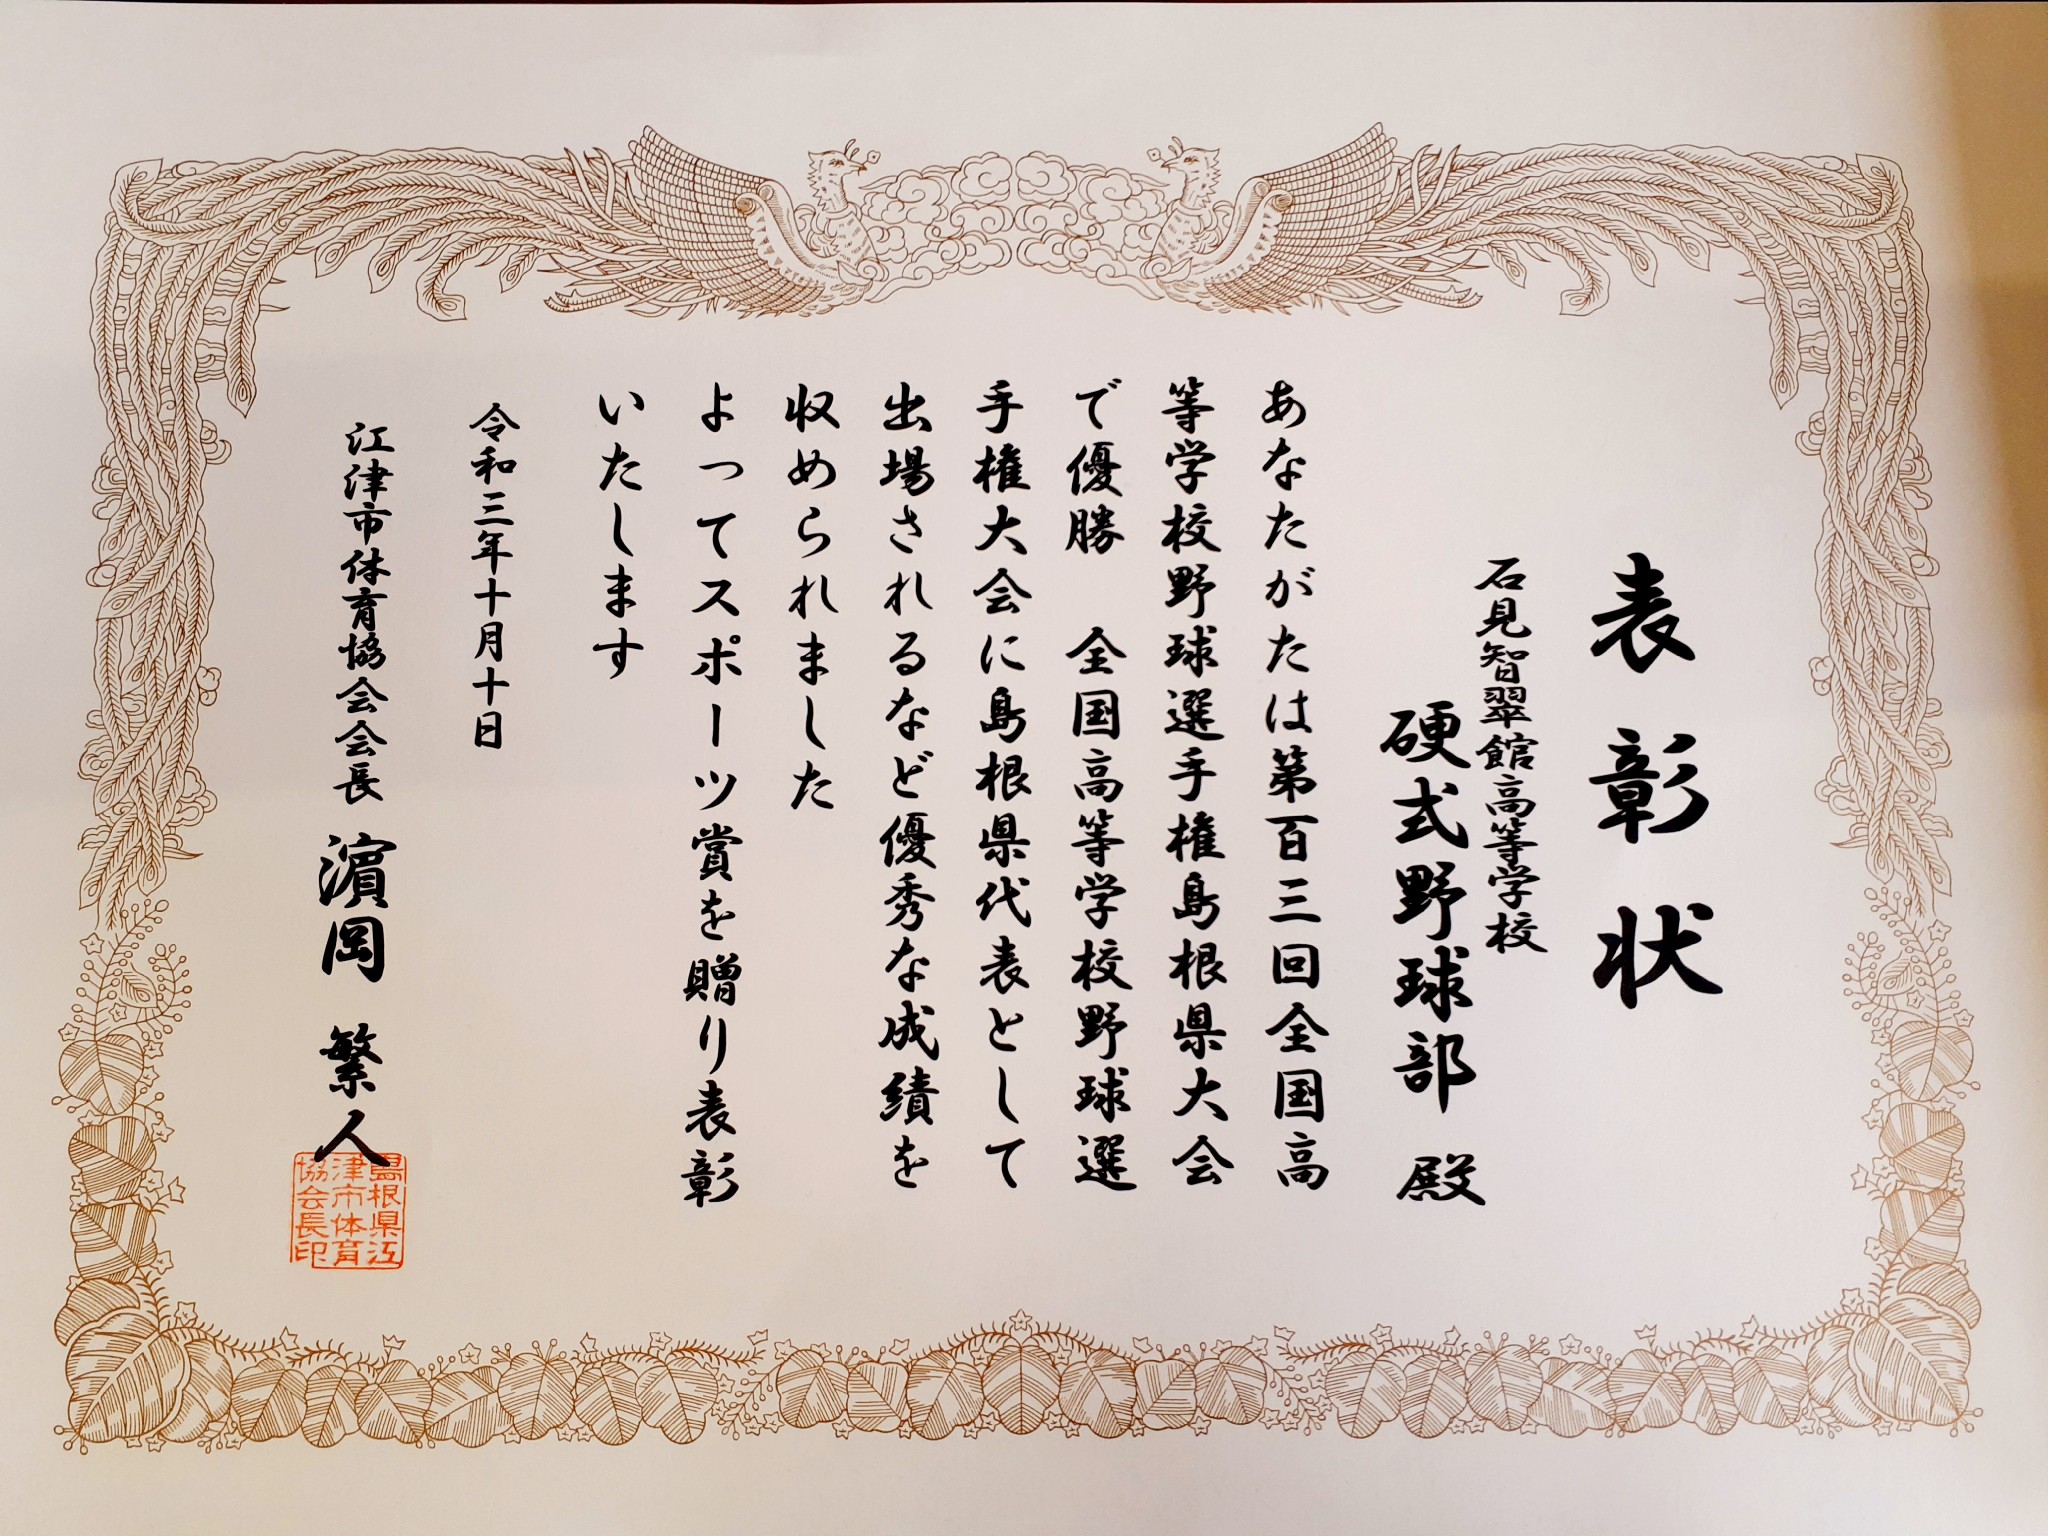 表彰状
石見智翠館高等学校
硬式野球部 殿
あなたがたは第百三回全国高
等学校野球選手権島根県大会
で優勝 全国高等学校野球選
手権大会に島根県代表として
出場されるなど優秀な成績を
収められました
よってスポーツ賞を贈り表彰
いたします
令和三年十月十日
江津市体育協会会長 濵岡 繁人
島根県江
津市体育
協会長印